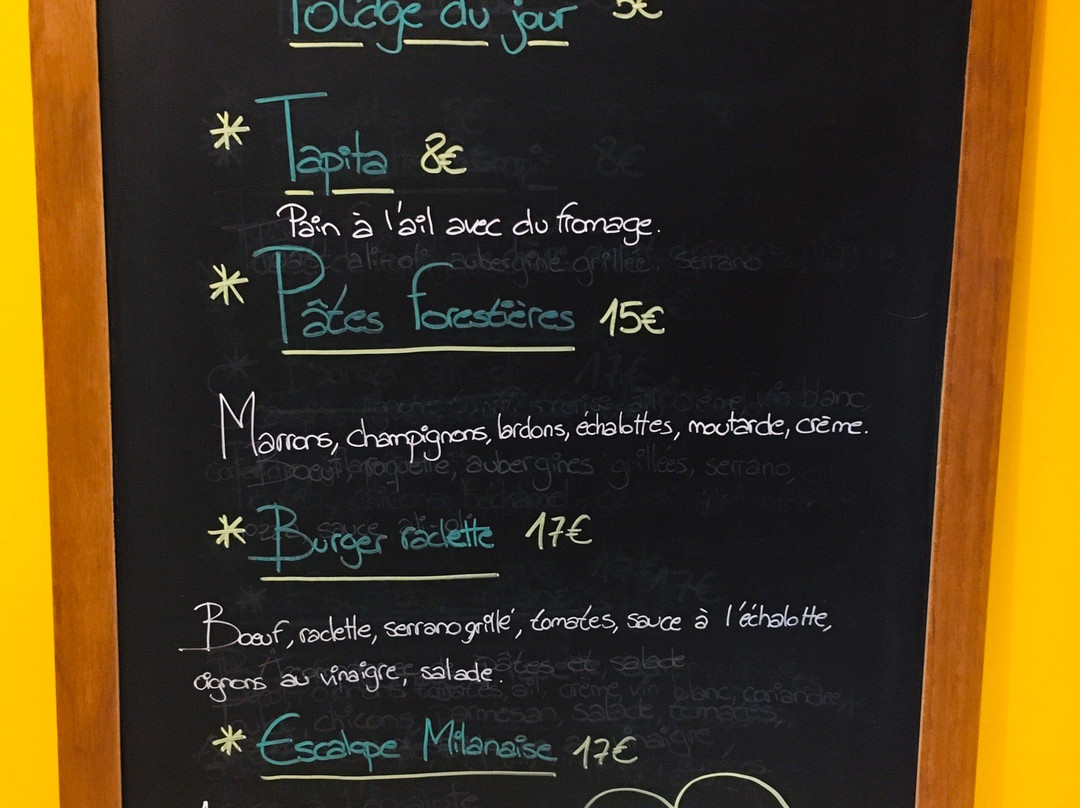 Potage du jour 5€
* Tapita 8€
Pain à l'ail avec du fromage.
* Pâtes forestières 15€
Marrons, champignons, lardons, échalottes, moutarde, crème.
* Burger raclette 17€
Boeuf, raclette, serrano grillé, tomates, sauce à l'échalotte,
oignons au vinaigre, salade.
* Escalope Milanaise 17€